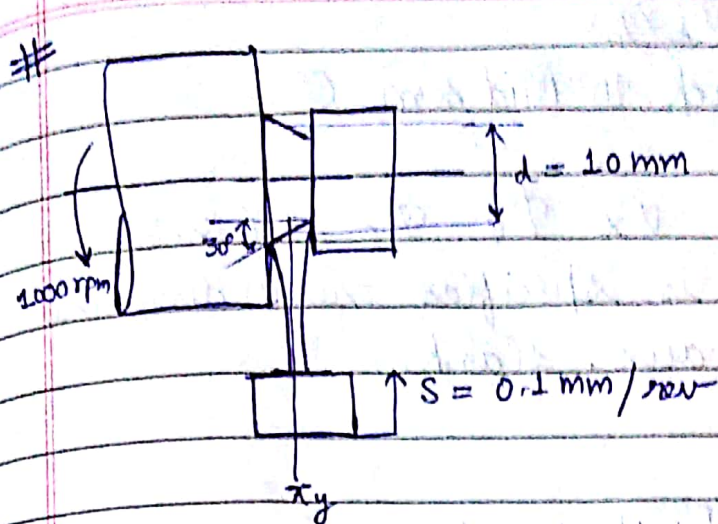 #
d = 10 mm
30°
1000 rpm
S = 0.1 mm/rev
πy